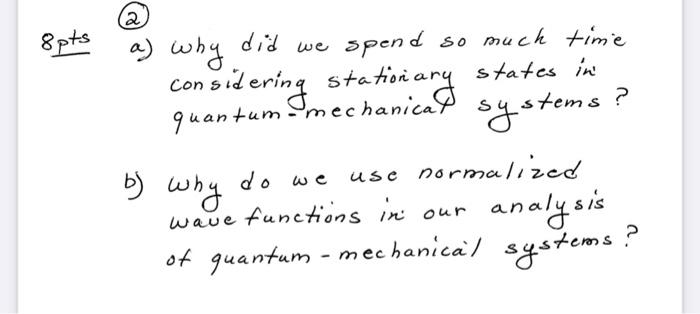 ②
8pts a) why did we spend so much time
considering stationary states in
quantum-mechanical systems?
b) why do we use normalized
wave functions in our analysis
of quantum-mechanical systems?